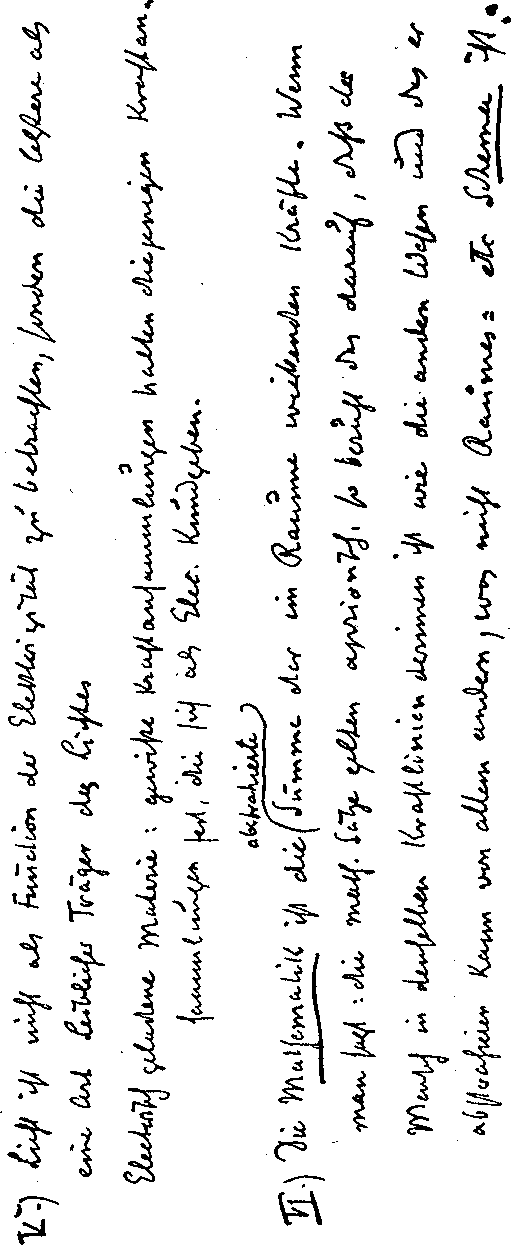 V.) Licht ist nicht als Function der Elektrizität zu betrachten, sondern die letztere als
eine Art leiblicher Träger des Lichtes
Electrisch geladene Materie: gewisse Kraftansammlungen halten diejenigen Kraftan-
sammlungen fest, die sich als Elec. kundgeben.
abstrahierte
VI.) Die Mathematik ist die Summe der im Raume wirkenden Kräfte. Wenn
man sagt: die math. Sätze gelten apriorisch, so beruht das darauf, daß der
Mensch in denselben Kraftlinien darinnen ist wie die andern Wesen und das er
abstrahieren kann von allem andern, was nicht Raumes= etc Schema ist.